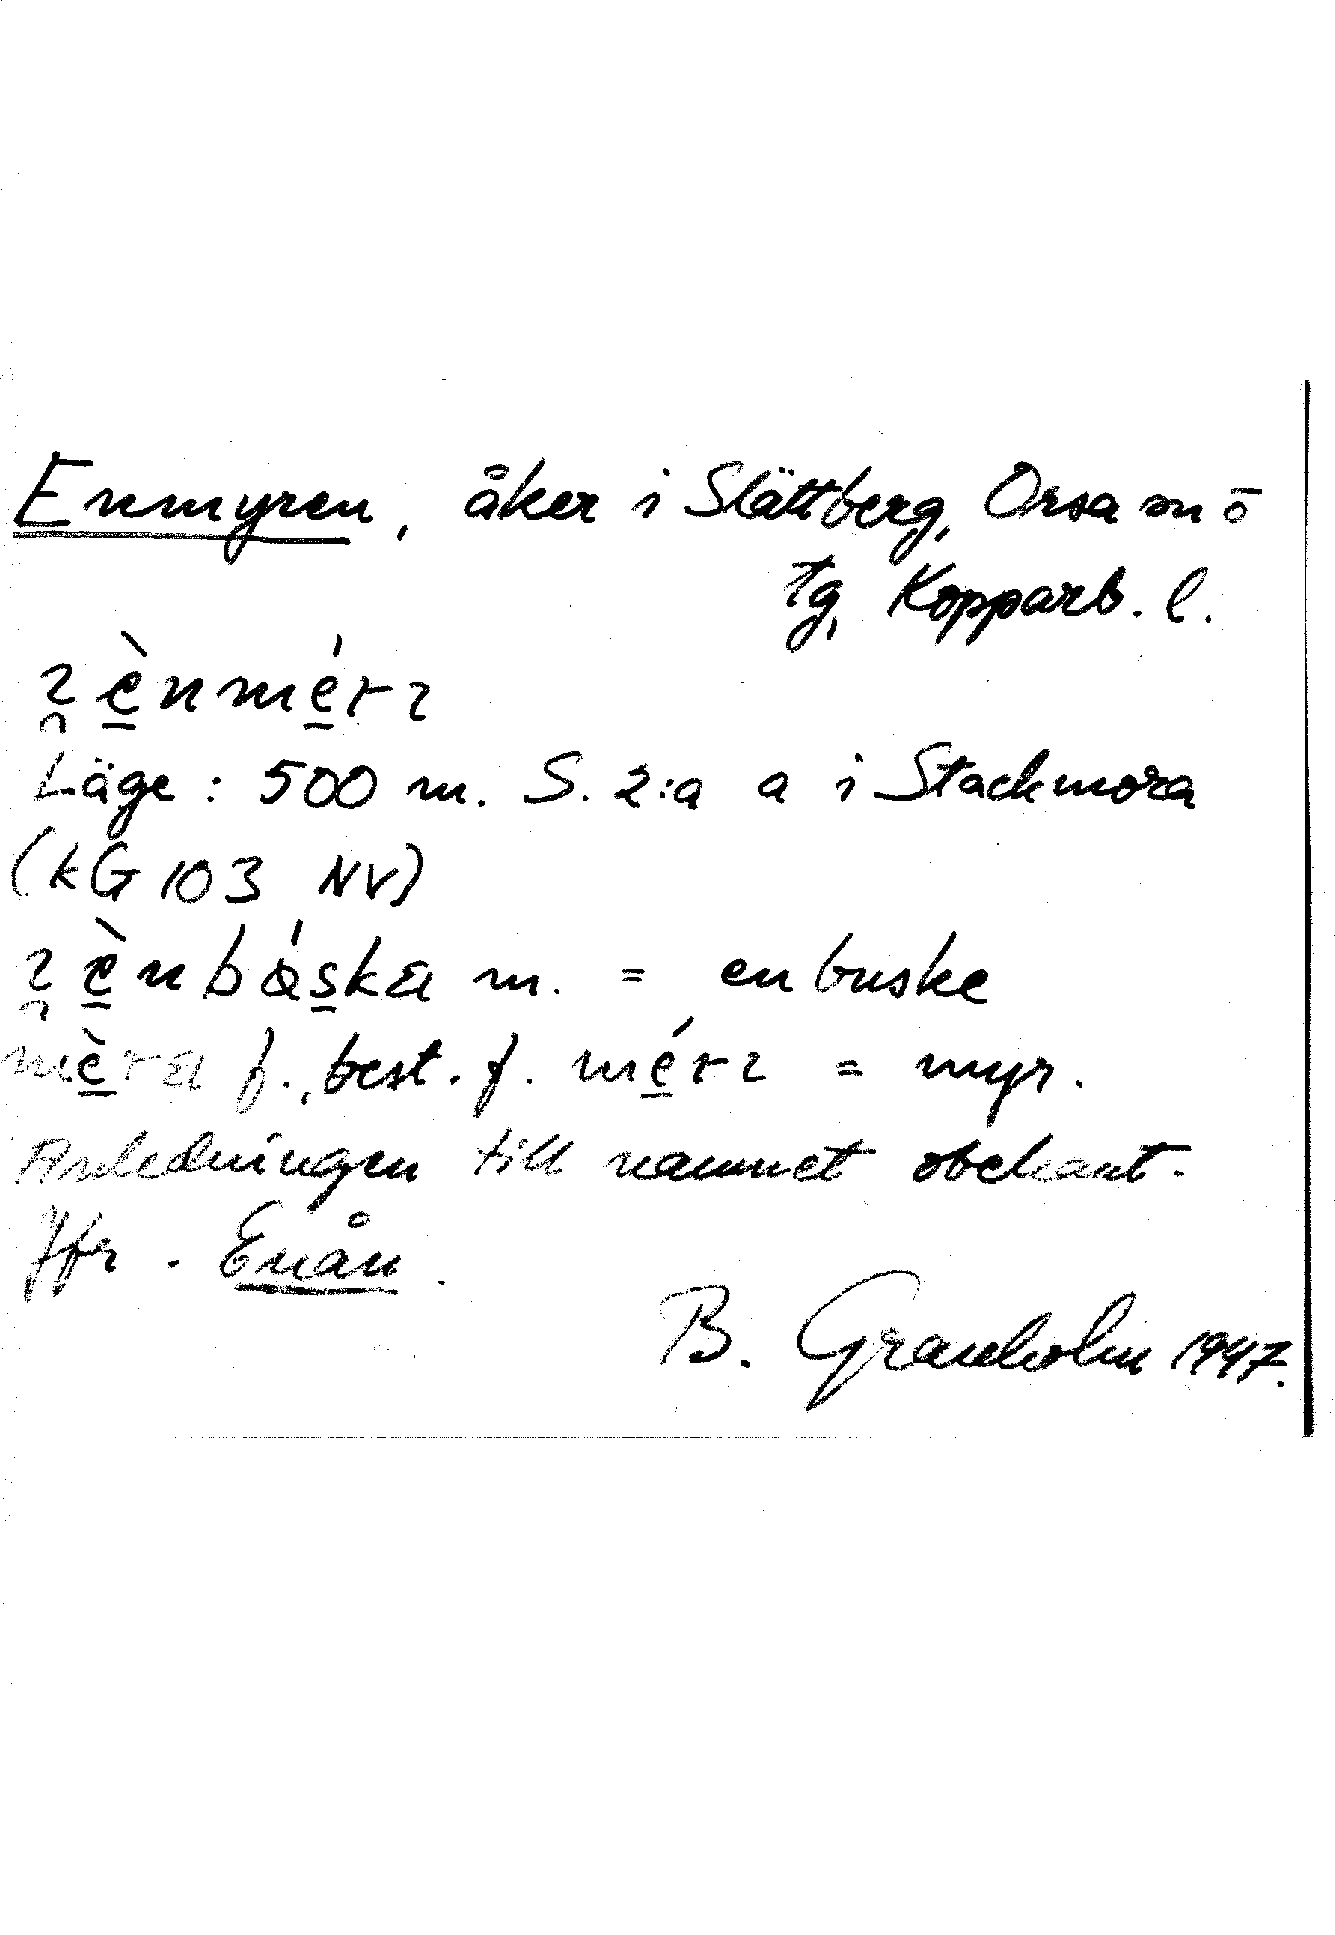 Enmyren, åker i Slättberg, Orsa sn o
tg, Kopparb. l.
ɩ̯è̠nmé̠rɩ
Läge: 500 m. S. 2:a a i Stackmora
(kG 103 NV)
m. = en buske
f., best. f. mé̠rɩ = myr.
Anledningen till namnet obekant.
Jfr. Enån.
B. Granholm 1947.